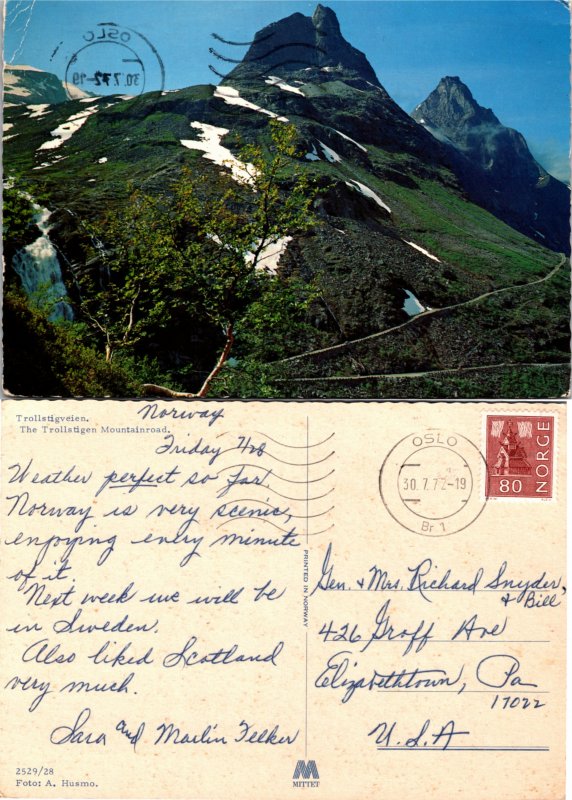 OSLO
30.7.72-19
Trollstigveien.
The Trollstigen Mountainroad.
Norway
Friday 7/28
Weather perfect so far.
Norway is very scenic,
enjoying every minute
of it.
Next week we will be
in Sweden.
Also liked Scotland
very much.
Sara and Marlin Felker
2529/28
Foto: A. Husmo.
PRINTED IN NORWAY
MITTET
OSLO
30.7.72-19
Br 1
NORGE
80
Gen. & Mrs. Richard Snyder,
& Bill
426 Groff Ave
Elizabethtown, Pa
17022
U.S.A